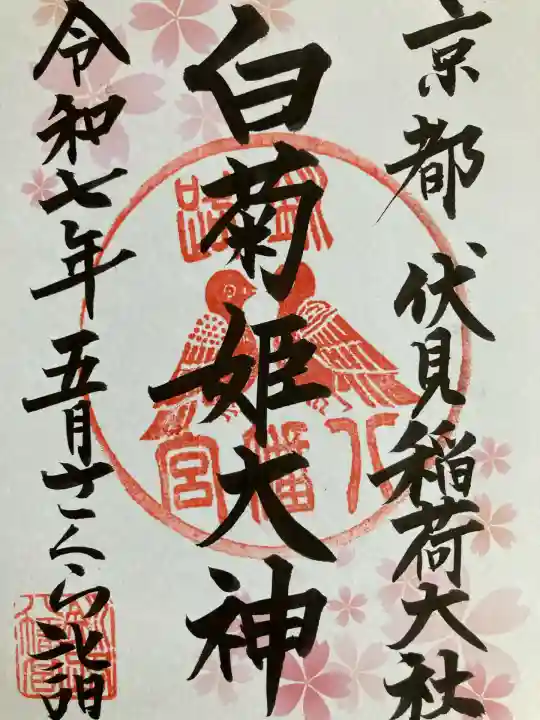 京都 伏見稲荷大社
白菊姫大神
令和七年五月さくら詣
八幡宮